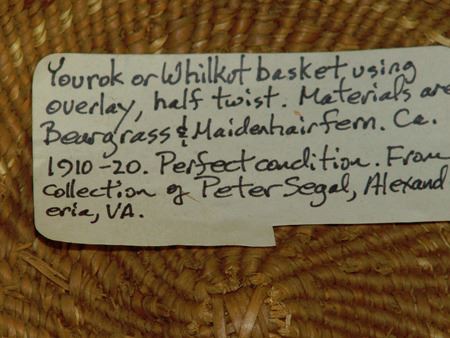 Yourok or Whilkut basket using
overlay, half twist. Materials are
Beargrass & Maidenhair fern. Ca.
1910-20. Perfect condition. From
collection of Peter Segal, Alexand
eria, VA.